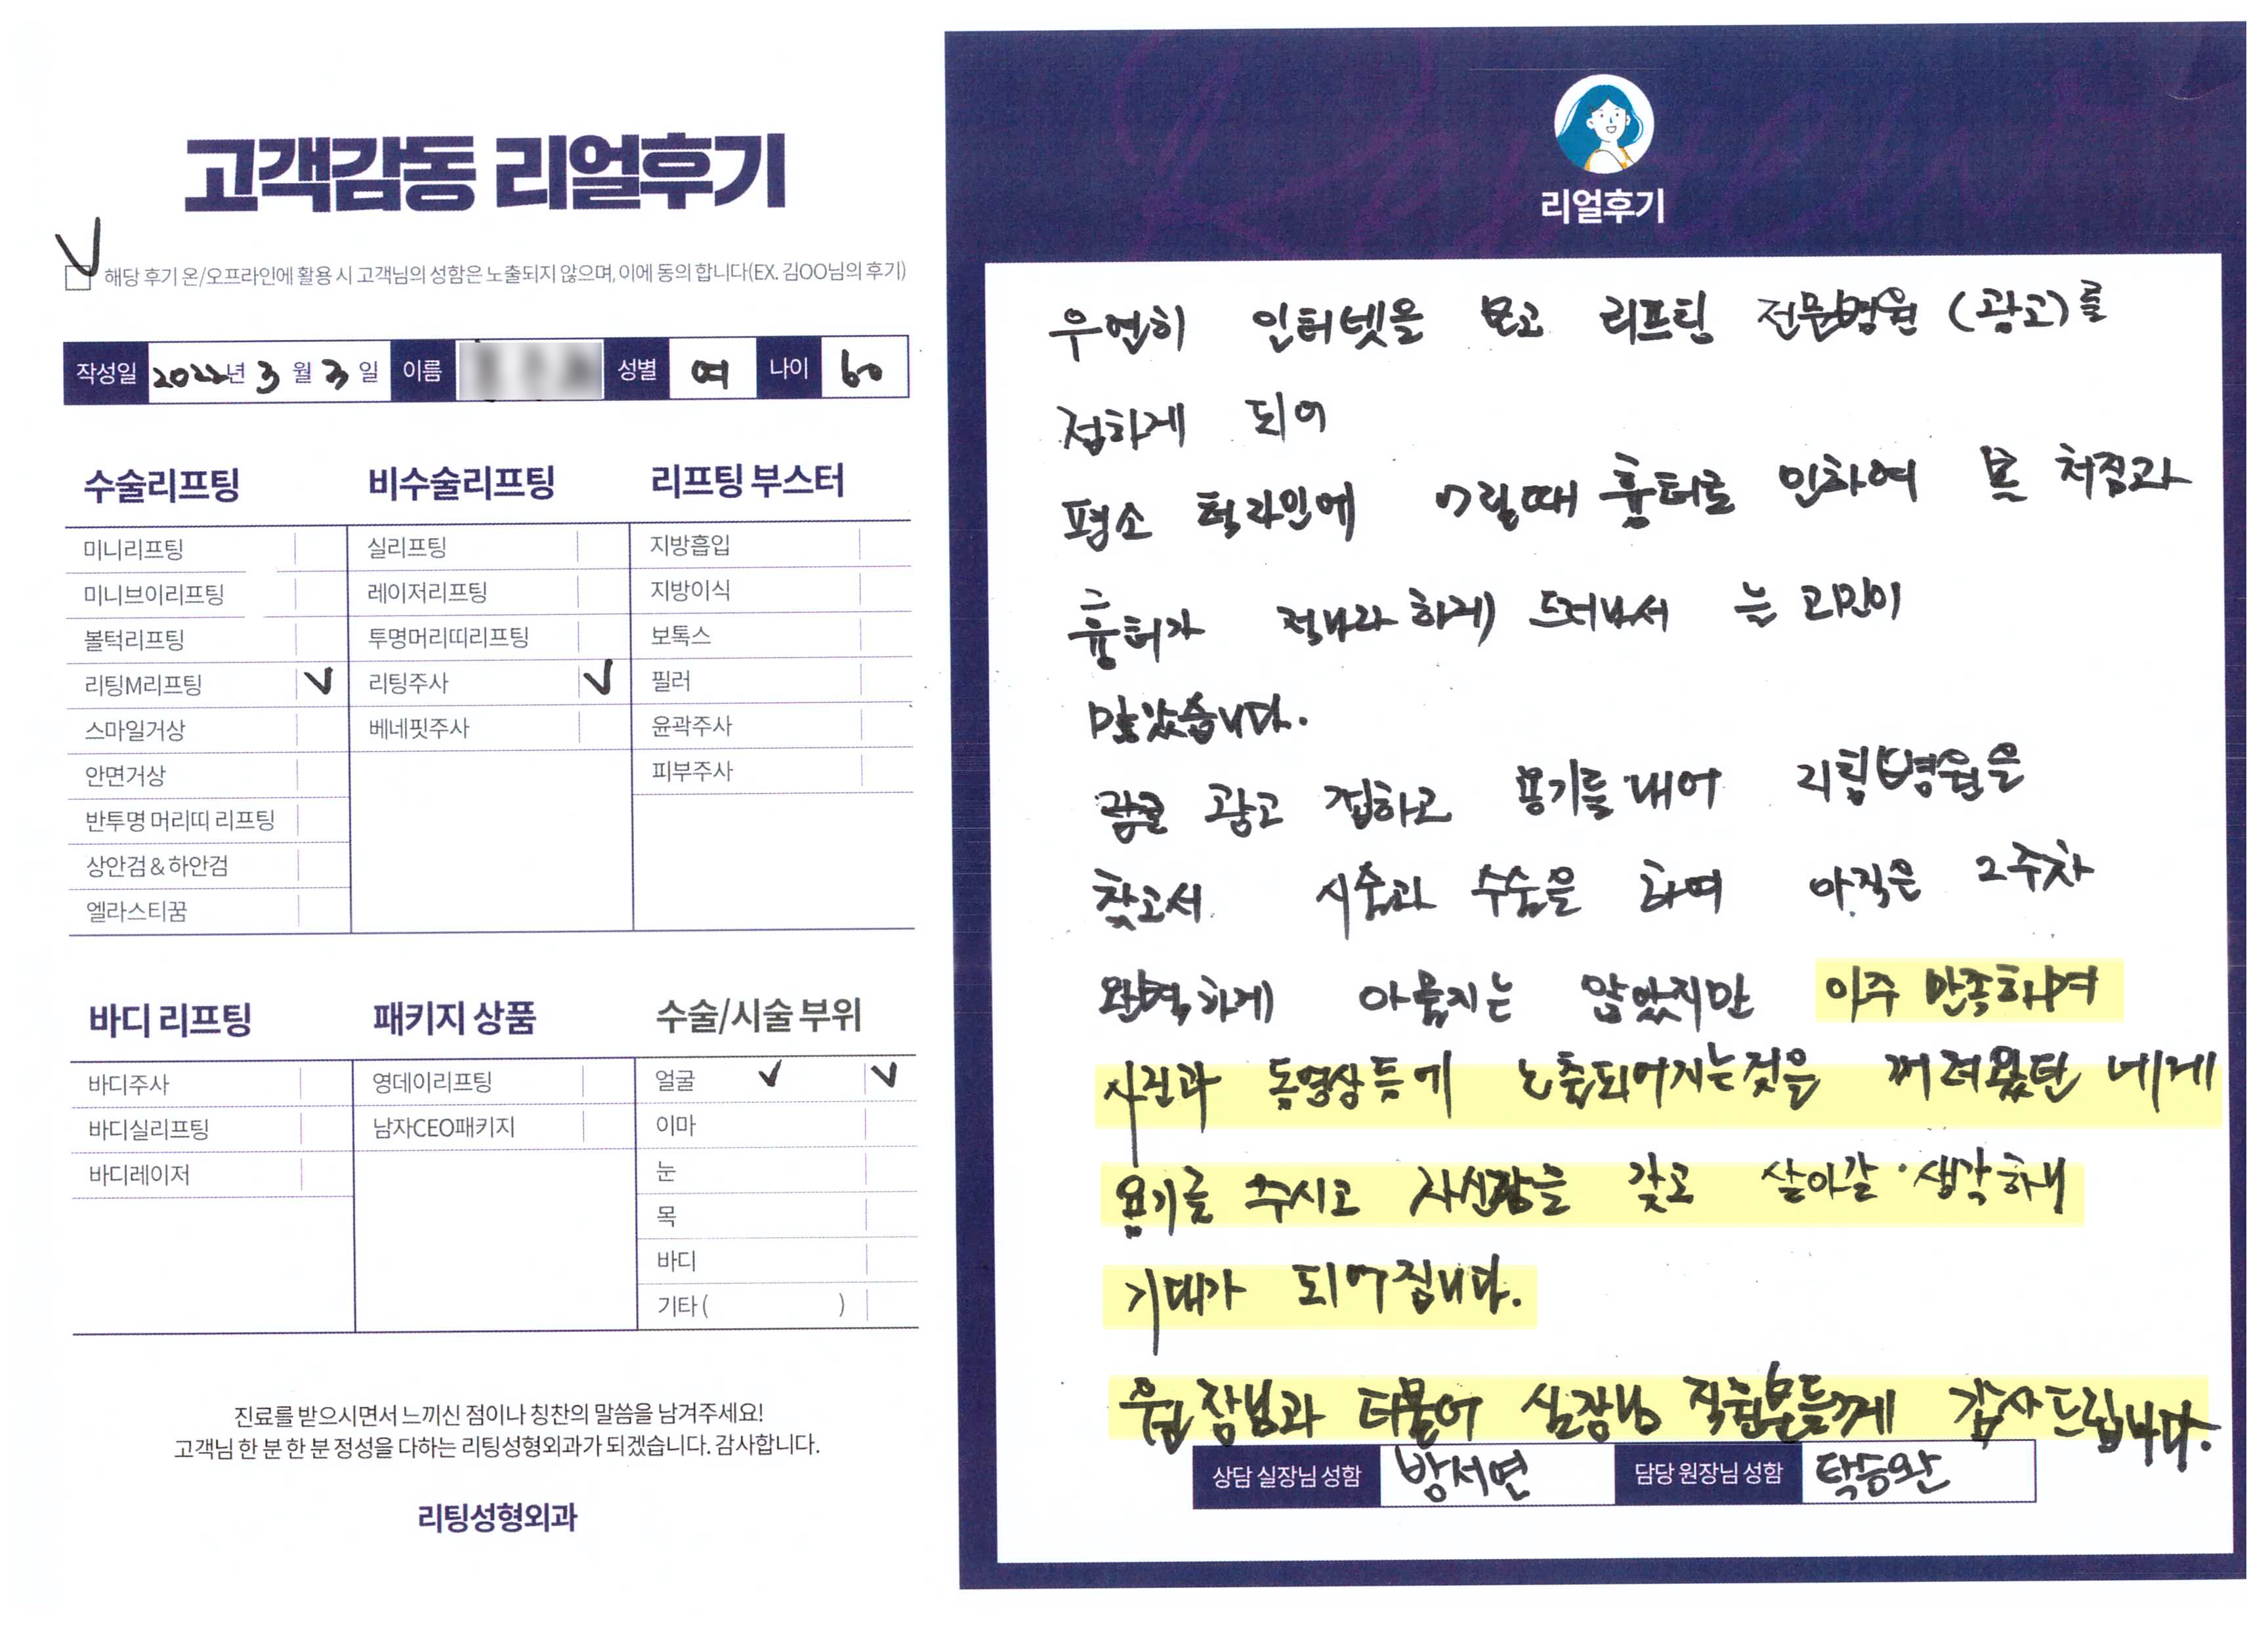 고객감동 리얼후기
해당 후기 온/오프라인에 활용 시 고객님의 성함은 노출되지 않으며, 이에 동의 합니다(EX. 김OO님의 후기)
작성일 2022년 3월 3일 이름 성별 여 나이 60
수술리프팅
미니리프팅
미니브이리프팅
볼턱리프팅
리팅M리프팅 ✓
스마일거상
안면거상
반투명 머리띠 리프팅
상안검&하안검
엘라스티꿈
비수술리프팅
실리프팅
레이저리프팅
투명머리띠리프팅
리팅주사 ✓
베네핏주사
리프팅 부스터
지방흡입
지방이식
보톡스
필러
윤곽주사
피부주사
바디 리프팅
바디주사
바디실리프팅
바디레이저
패키지 상품
영데이리프팅
남자CEO패키지
수술/시술 부위
얼굴 ✓ ✓
이마
눈
목
바디
기타 ( )
진료를 받으시면서 느끼신 점이나 칭찬의 말씀을 남겨주세요!
고객님 한 분 한 분 정성을 다하는 리팅성형외과가 되겠습니다. 감사합니다.
리팅성형외과
리얼후기
우연히 인터넷을 보고 리프팅 전문병원 (광고)를
접하게 되어
평소 턱라인에 어릴때 흉터로 인하여 목 처짐과
흉터가 적나라하게 드러나서 는 고민이
많았습니다.
광고 접하고 용기를 내어 리팅병원을
찾고서 시술과 수술을 하여 아직은 2주차
완벽하게 아물지는 않았지만 아주 만족하며
사진과 동영상등에 노출되어지는것을 꺼려왔던 네게
용기를 주시고 자신감을 갖고 살아갈 생각하니
기대가 되어집니다.
원장님과 더불어 실장님 직원분들께 감사드립니다.
상담 실장님 성함 방서연 담당 원장님 성함 탁승완